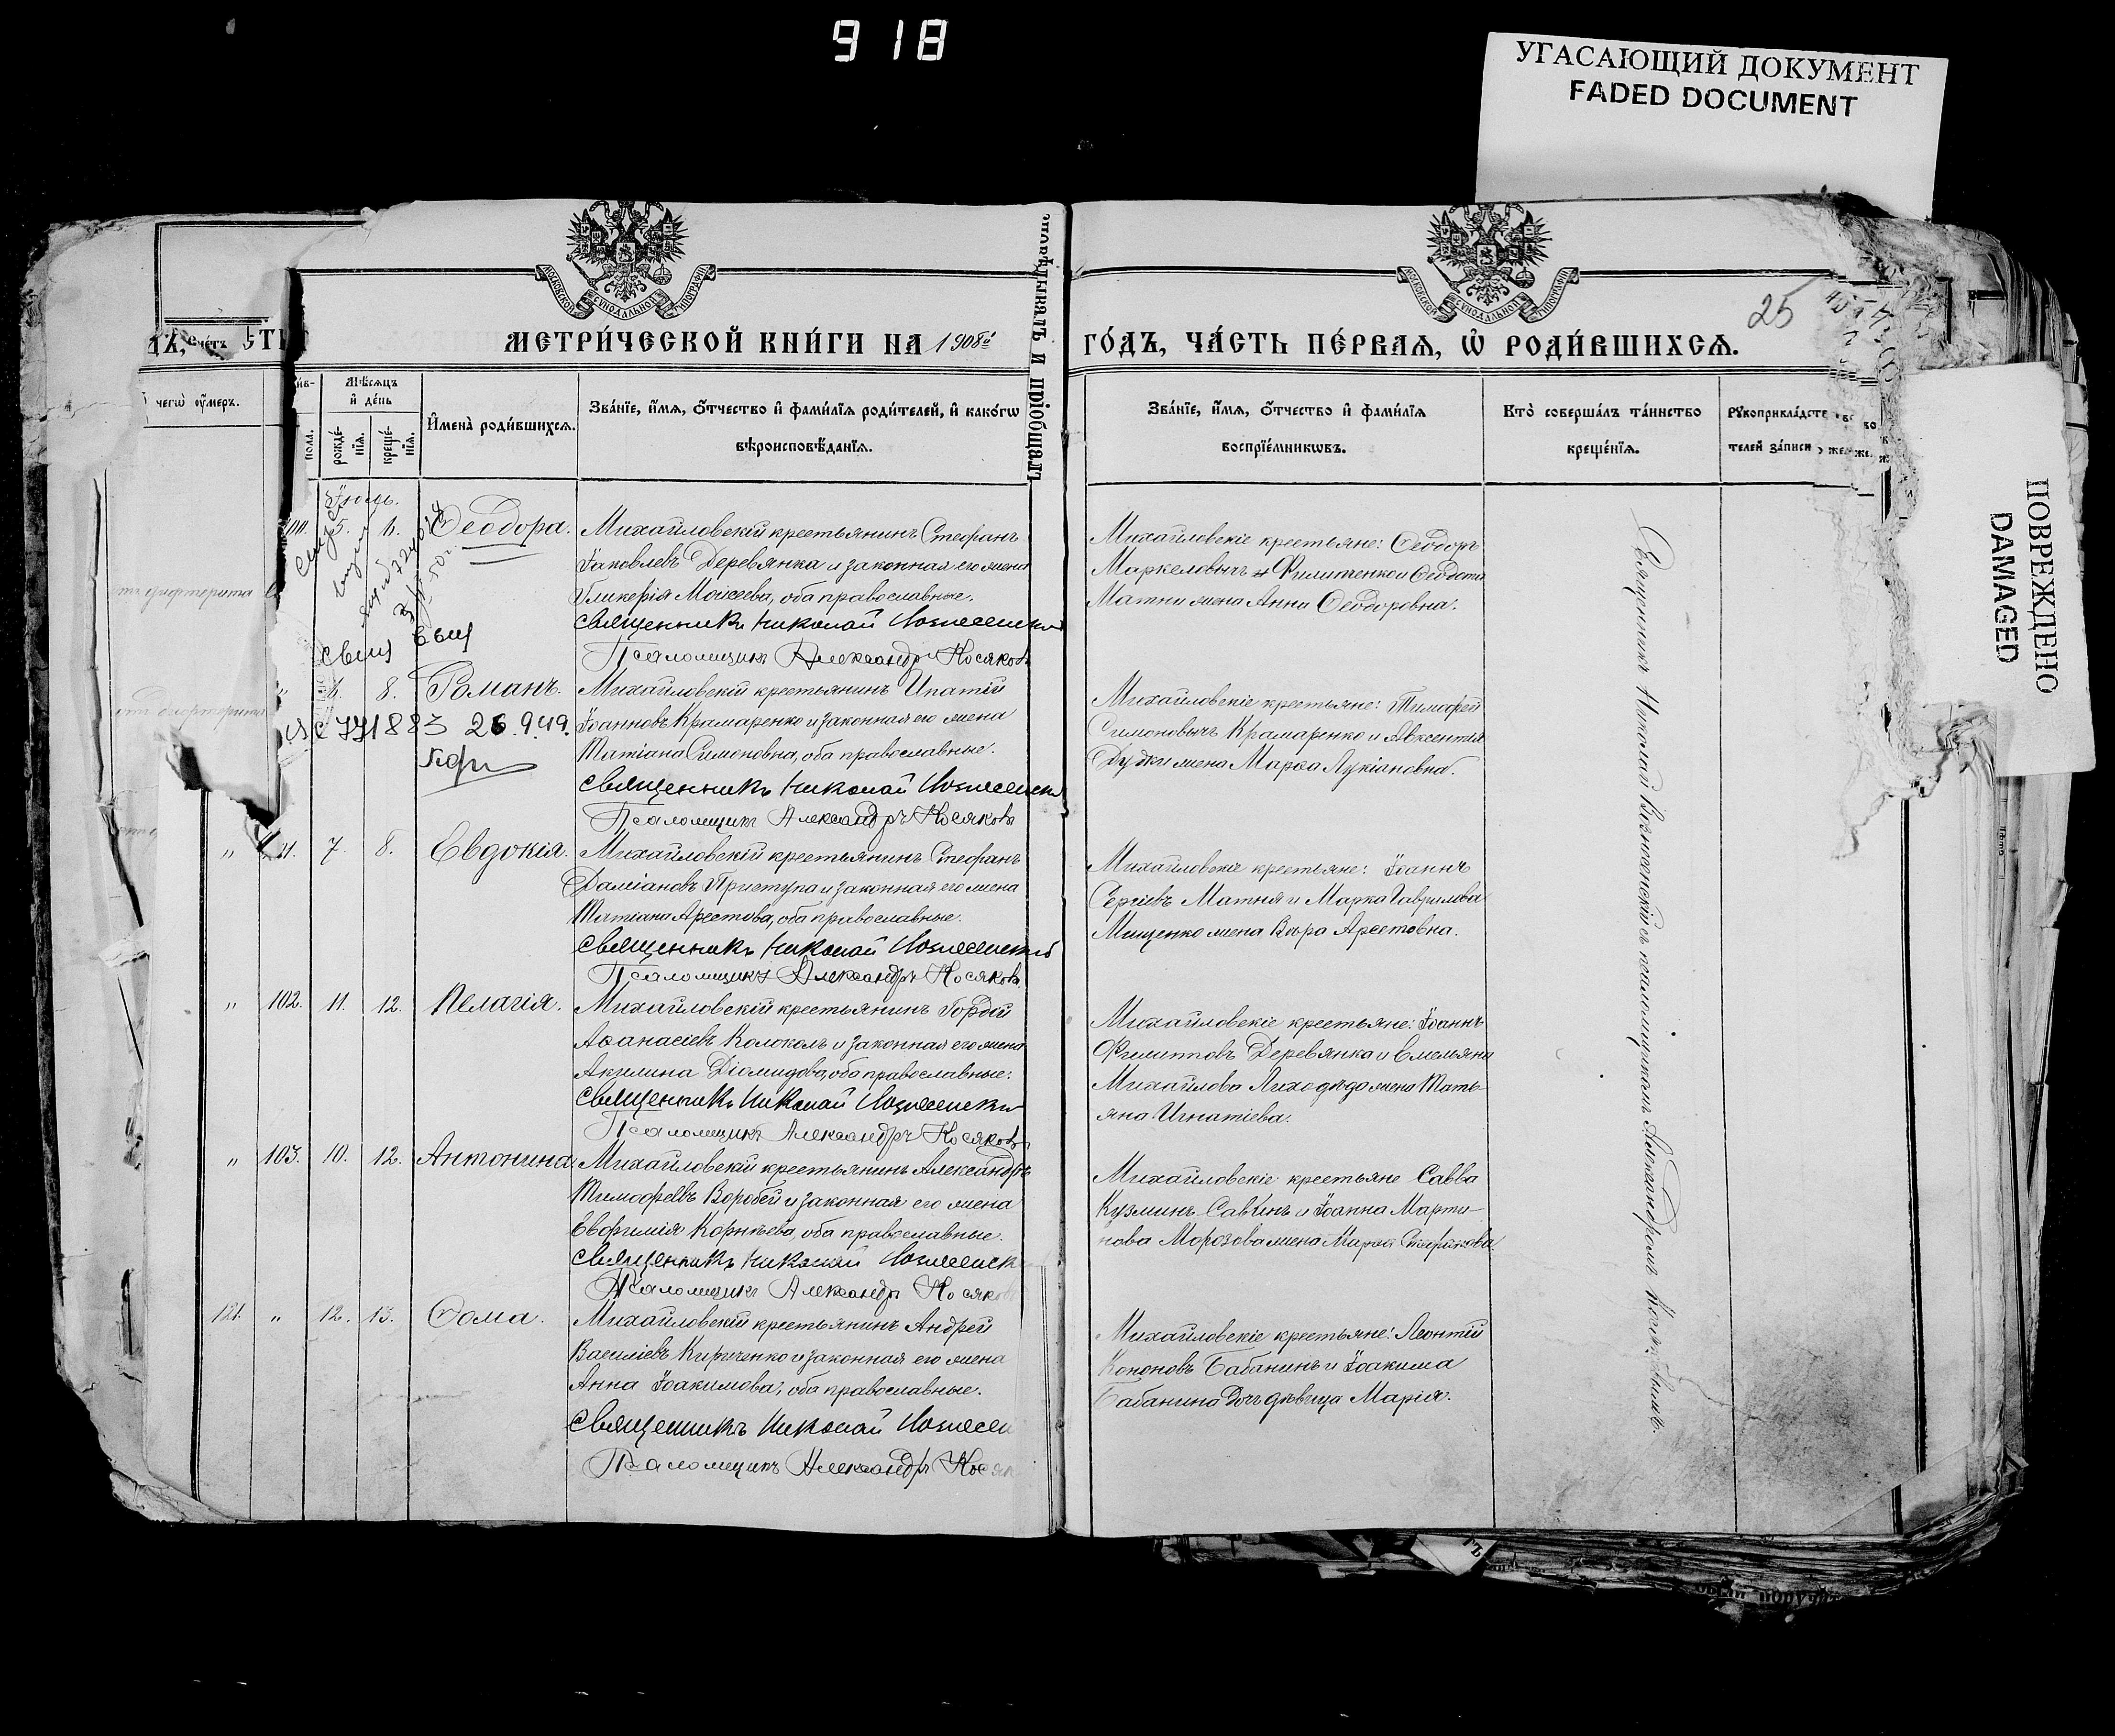 918
УГАСАЮЩИЙ ДОКУМЕНТ
FADED DOCUMENT
ПОВРЕЖДЕНО
DAMAGED
25
МЕТРИ́ЧЕСКОЙ КНИ́ГИ НА 1908й
ГО́ДЪ, ЧА́СТЬ ПЕ́РВАЯ, Ѡ҆ РОДИ́ВШИХСЯ.
МОСКОВСКОЙ СѴНОДАЛЬНОЙ ТИПОГРАФІИ
МОСКОВСКОЙ СѴНОДАЛЬНОЙ ТИПОГРАФІИ
Счетъ
чегѡ̀ ᲂу҆́меръ.
пола.
Мѣ́сяцъ
и҆ де́нь
рожде́-
нїя.
креще́-
нїя.
И҆мена̀ роди́вшихся.
Зва́нїе, и҆́мя, ѻ҆́тчество и҆ фами́лїя роди́телей, и҆ како́гѡ
вѣроисповѣ́данїя.
Зва́нїе, и҆́мя, ѻ҆́тчество и҆ фами́лїя
воспрїе́мникѡвъ.
Кто̀ соверша́лъ та́инство
креще́нїя.
Рꙋкоприкла́дств
телей за́писи
исповѣдывалъ и пріобщалъ
Іюль.
100. 5. 6. Ѳеодора.
Михайловскій крестьянинъ Стефанъ
Іаковлевъ Деревянка и законная его жена
Гликерія Моисеева, оба православные.
Священникъ Николай Вознесенскій
Псаломщикъ Александръ Косяковъ
Михайловскіе крестьяне: Ѳеодоръ
Маркеловичъ Филипенко и Ѳеодота
Матни жена Анна Ѳеодоровна.
6. 8. Романъ.
Михайловскій крестьянинъ Ипатій
Іоанновъ Крамаренко и законная его жена
Татіана Симоновна, оба православные.
Священникъ Николай Вознесенскій
Псаломщикъ Александръ Косяковъ
771883 26.9.49.
Михайловскіе крестьяне: Тимофей
Симоновичъ Крамаренко и Авксентія
Дудки жена Марѳа Лукіановна.
" 101. 7. 8. Евдокія.
Михайловскій крестьянинъ Стефанъ
Даміановъ Приступа и законная его жена
Татіана Арестова, оба православные.
Священникъ Николай Вознесенскій
Псаломщикъ Александръ Косяковъ
Михайловскіе крестьяне: Іоаннъ
Сергіевъ Матня и Марка Гаврилова
Мищенко жена Вѣра Арестовна.
" 102. 11. 12. Пелагія.
Михайловскій крестьянинъ Гордѣй
Аѳанасіевъ Колоколъ и законная его жена
Акилина Діомидова, оба православные:
Священникъ Николай Вознесенскій
Псаломщикъ Александръ Косяковъ
Михайловскіе крестьяне: Іоаннъ
Филипповъ Деревянка и Емельяна
Михайлова Лиходѣда жена Тать-
яна Игнатіева.
" 103. 10. 12. Антонина.
Михайловскій крестьянинъ Александръ
Тимофеевъ Воробей и законная его жена
Евфимія Корнѣева, оба православные.
Священникъ Николай Вознесенск
Псаломщикъ Александръ Косяков
Михайловскіе крестьяне Савва
Кузминъ Савкинъ и Іоанна Марти-
нова Морозова жена Марѳа Стефанова.
121. " 12. 13. Ѳома.
Михайловскій крестьянинъ Андрей
Василіевъ Кириченко и законная его жена
Анна Іоакимова, оба православные.
Священникъ Николай Вознесен
Псаломщикъ Александръ Косяк
Михайловскіе крестьяне: Леонтій
Кононовъ Бабанинъ и Іоакима
Бабанина дочь дѣвица Марія.
Священникъ Николай Вознесенскій съ псаломщикомъ Александромъ Косяковымъ.